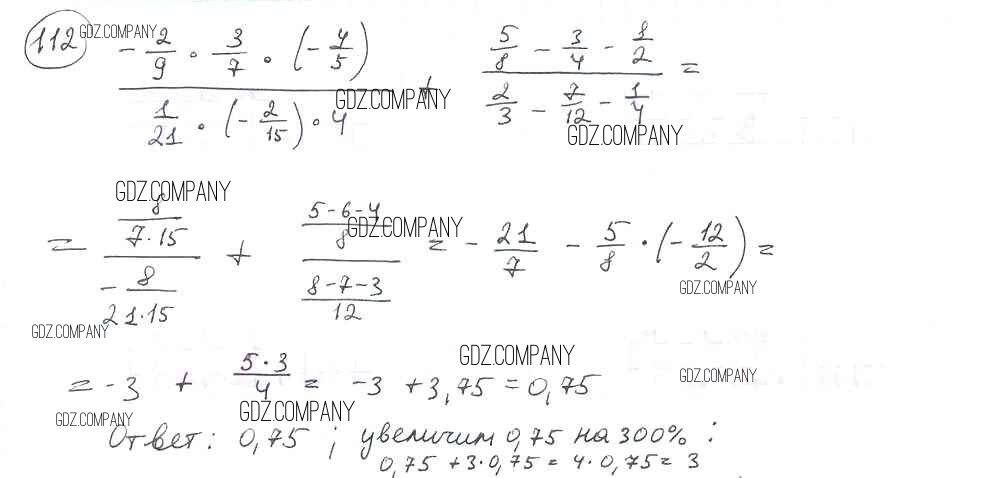 112 GDZ.COMPANY
(-2/9 · 3/7 · (-4/5)) / (1/21 · (-2/15) · 4) + (5/8 - 3/4 - 1/2) / (2/3 - 7/12 - 1/4) =
GDZ.COMPANY
GDZ.COMPANY
GDZ.COMPANY
= (8/(7·15)) / (-8/(21·15)) + ((5-6-4)/8) / ((8-7-3)/12) = -21/7 - 5/8 · (-12/2) =
GDZ.COMPANY
GDZ.COMPANY
GDZ.COMPANY
GDZ.COMPANY
= -3 + (5·3)/4 = -3 + 3,75 = 0,75
GDZ.COMPANY
GDZ.COMPANY
GDZ.COMPANY
Ответ: 0,75 ; увеличим 0,75 на 300% :
0,75 + 3·0,75 = 4·0,75 = 3